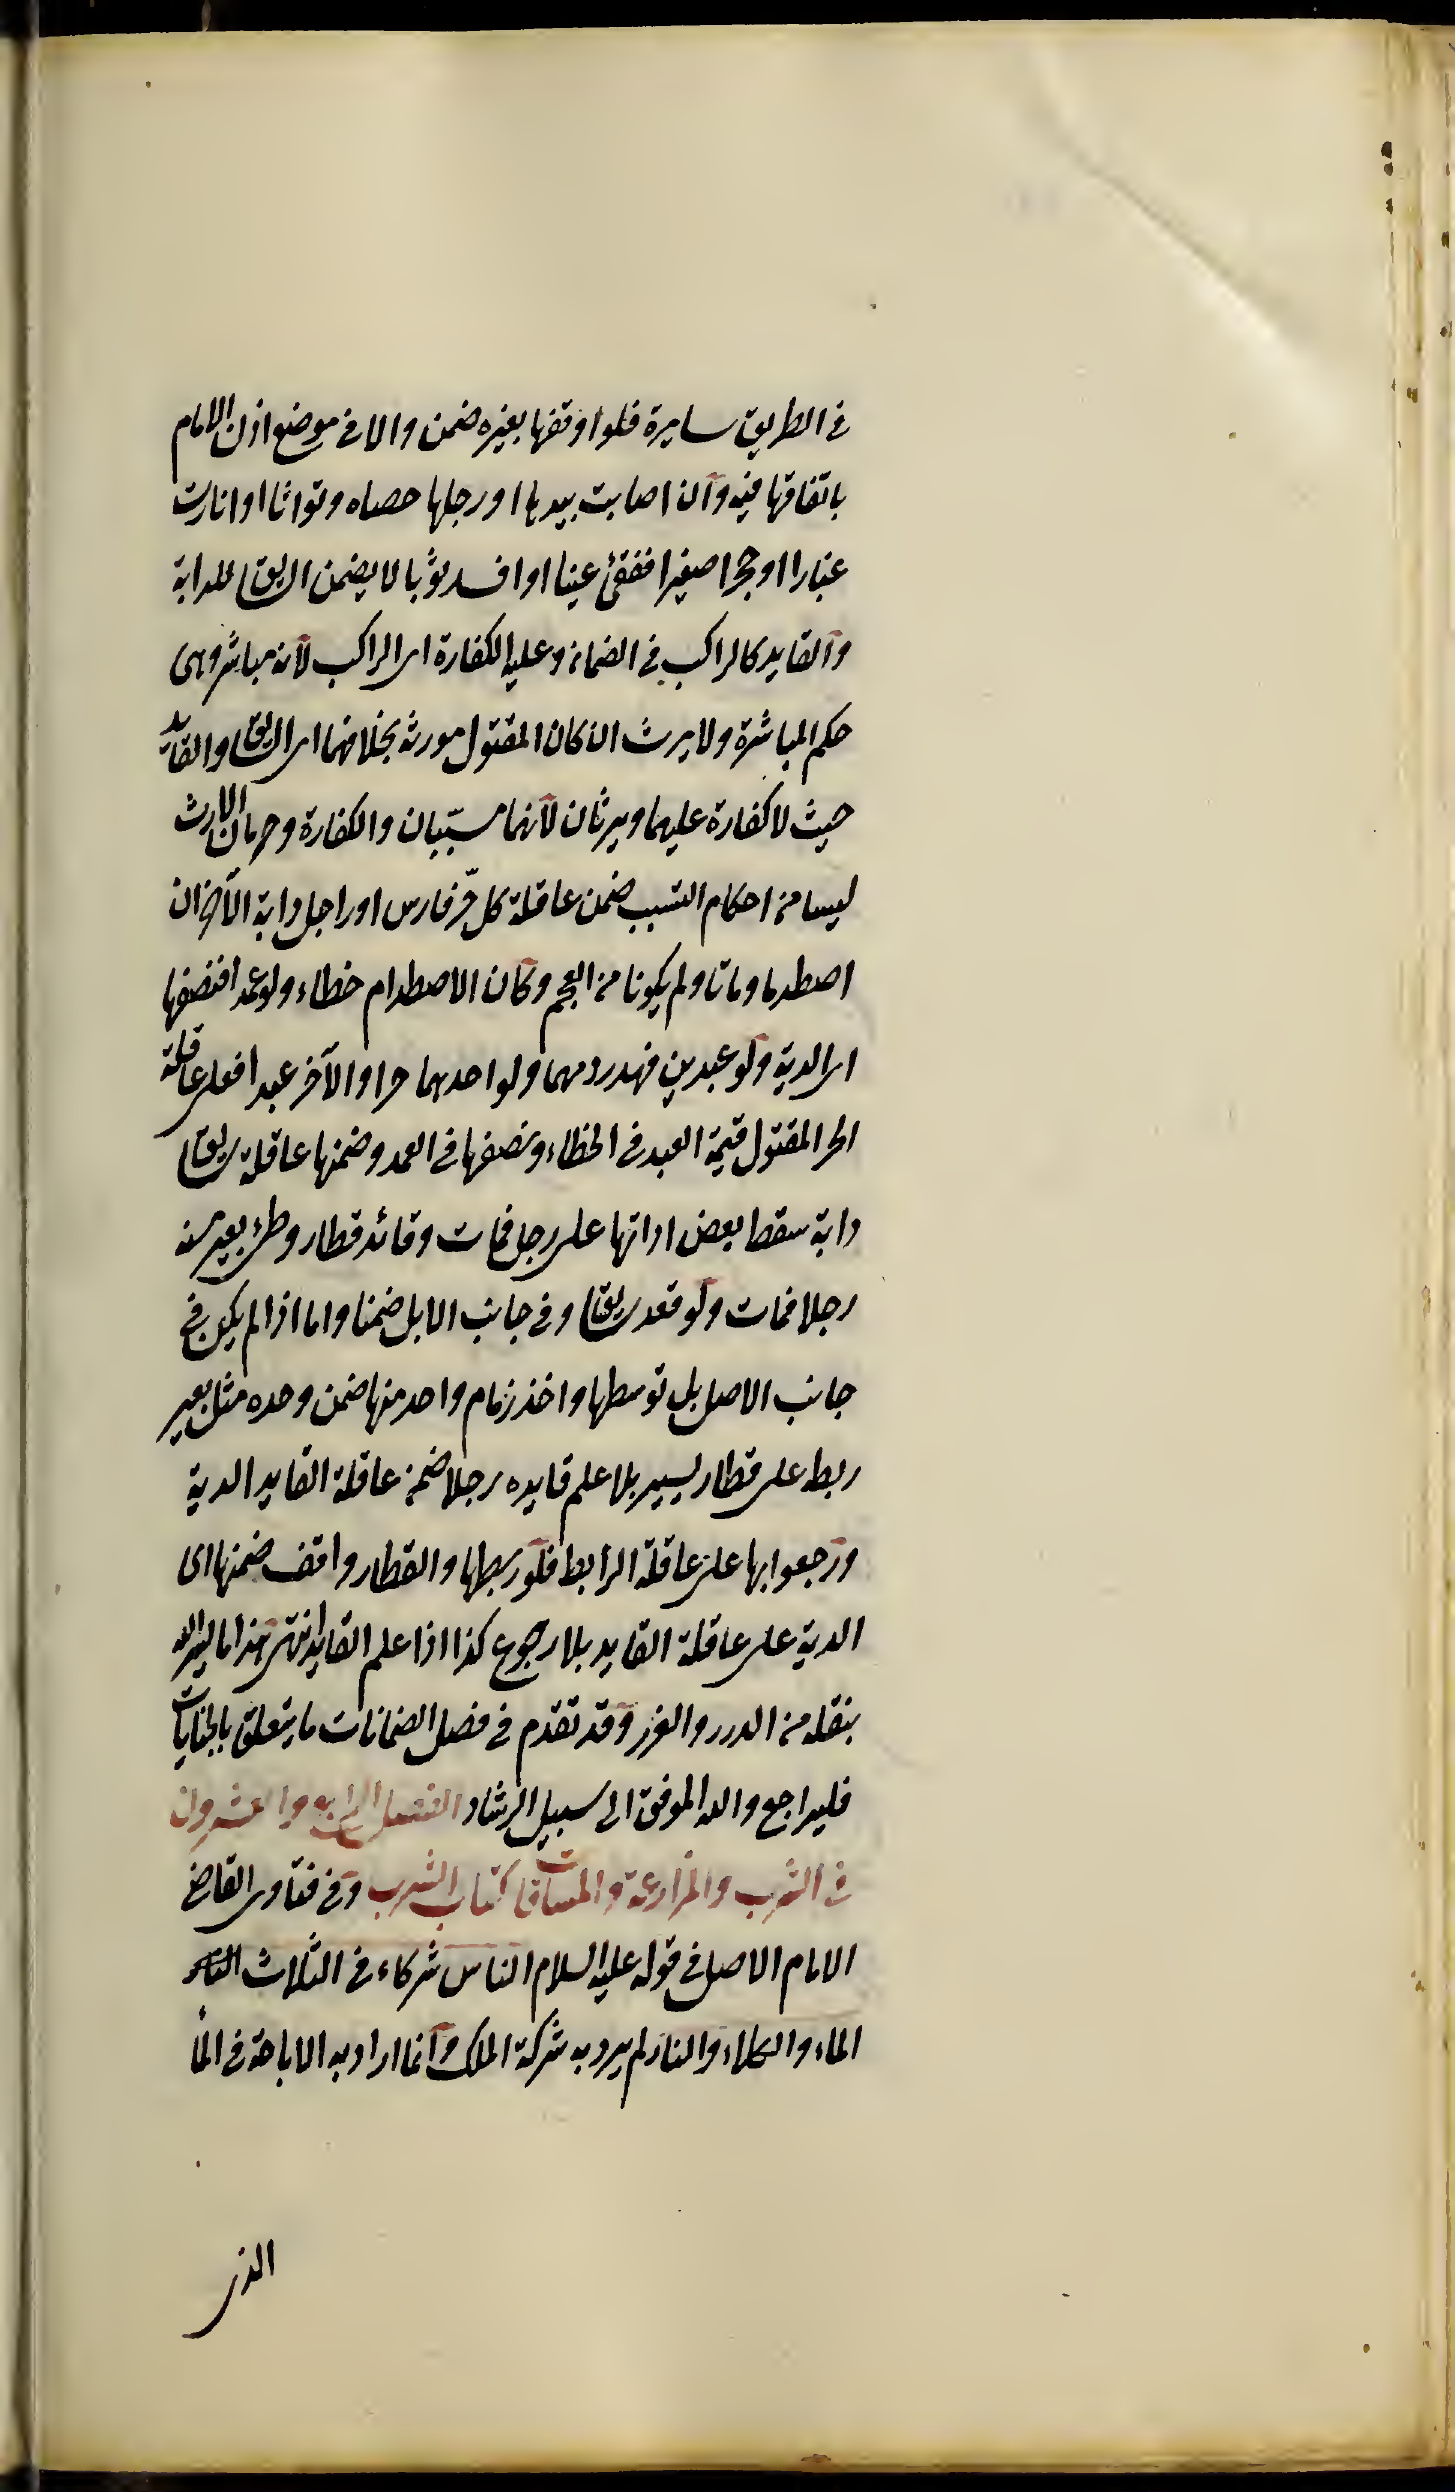 في الطريق سايرة فلو اوقفها بغيره ضمن والا في موضع اذن الامام
باتفاقها فيه وان اصابت بيدها او رجلها حصاه ونواتا او اثارت
غبارا او حجرا صغيرا ففقئ عينا او افسد ثوبا لا يضمن السايق للدابة
والقايد كالراكب في الضمان وعليه الكفارة اى الراكب لانه مباشر وهى
حكم المباشرة ولا يرث ان كان المقتول مورثه بخلافهما اى السايق والقايد
حيث لا كفارة عليهما ويرثان لانهما مسببان والكفارة وحرمان الارث
ليسا من احكام التسبب ضمن عاقلة كل حر فارس او راجل دية الآخر ان
اصطدما وماتا ولم يكونا من العجم وكان الاصطدام خطاء ولو عمدا فنصفها
اى الدية ولو عبدين فهدر دمهما ولو احدهما حرا والآخر عبدا فعلى عاقلة
الحر المقتول قيمة العبد في الخطاء ونصفها في العمد وضمنها عاقلة سايق
دابة سقط بعض اداتها على رجل فمات وقائد قطار وطئ بعير منه
رجلا فمات ولو قعد سايق وفي جانب الابل ضمنا واما اذا لم يكن في
جانب الاصل بل توسطها واخذ زمام واحد منها ضمن وحده مثل بعير
ربط على قطار يسير بلا علم قايده رجلا ضمن عاقلة القايد الدية
ورجعوا بها على عاقلة الرابط فلو ربطها والقطار واقف ضمنها اى
الدية على عاقلة القايد بلا رجوع كذا اذا علم القايد انتهى هذا ما يسر الله
بنقله من الدرر والغرر وقد تقدم في فصل الضمانات ما يتعلق بالجنايات
فليراجع والله الموفق الى سبيل الرشاد الفصل الرابع والعشرون
في الشرب والمزارعة والمساقات كتاب الشرب وفي فتاوى القاضي
الامام الاصل في قوله عليه السلام الناس شركاء في الثلاث
الماء والكلاء والنار لم يرد به شركة الملك وانما اراد به الاباحة في الما
الذى